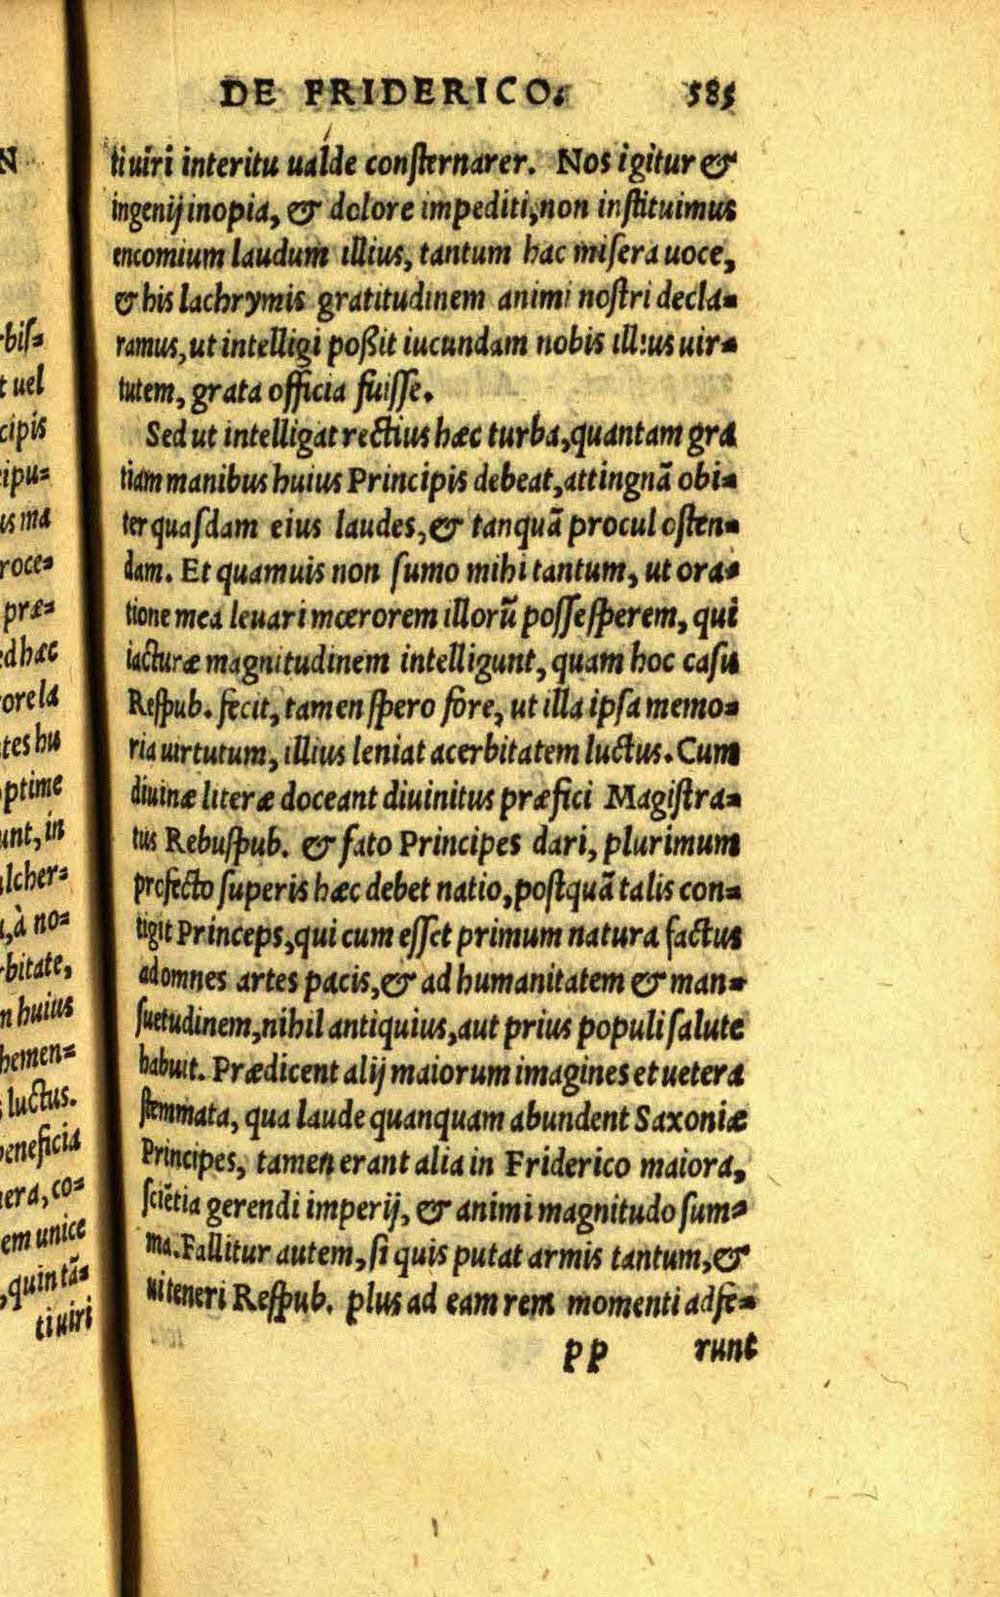 DE FRIDERICO. 585
tiuiri interitu ualde consternarer. Nos igitur &
ingenij inopia, & dolore impediti, non instituimus
encomium laudum illius, tantum hac misera uoce,
& his lachrymis gratitudinem animi nostri decla=
ramus, ut intelligi poßit iucundam nobis illius uir=
tutem, grata officia fuisse.
Sed ut intelligat rectius hæc turba, quantam gra
tiam manibus huius Principis debeat, attingnã obi=
ter quasdam eius laudes, & tanquã procul osten=
dam. Et quamuis non sumo mihi tantum, ut ora=
tione mea leuari mœrorem illorũ posse sperem, qui
iacturæ magnitudinem intelligunt, quam hoc casu
Respub. fecit, tamen spero fore, ut illa ipsa memo=
ria uirtutum, illius leniat acerbitatem luctus. Cum
diuinæ literæ doceant diuinitus præfici Magistra=
tus Rebuspub. & fato Principes dari, plurimum
profecto superis hæc debet natio, postquã talis con=
tigit Princeps, qui cum esset primum natura factus
ad omnes artes pacis, & ad humanitatem & man=
suetudinem, nihil antiquius, aut prius populi salute
habuit. Prædicent alij maiorum imagines et uetera
stemmata, qua laude quanquam abundent Saxoniæ
Principes, tamen erant alia in Friderico maiora,
sciẽtia gerendi imperij, & animi magnitudo sum=
ma. Fallitur autem, si quis putat armis tantum, &
ui teneri Respub. plus ad eam rem momenti adfe=
PP runt
N
rbis=
t uel
cipis
ipu=
us ma
roce=
præ=
ed hæc
ore la
tes hu
ptime
unt, in
ulcher=
, à no=
rbitate,
n huius
hemen=
luctus.
beneficia
era, co=
em unice
, quin tã=
tiuiri